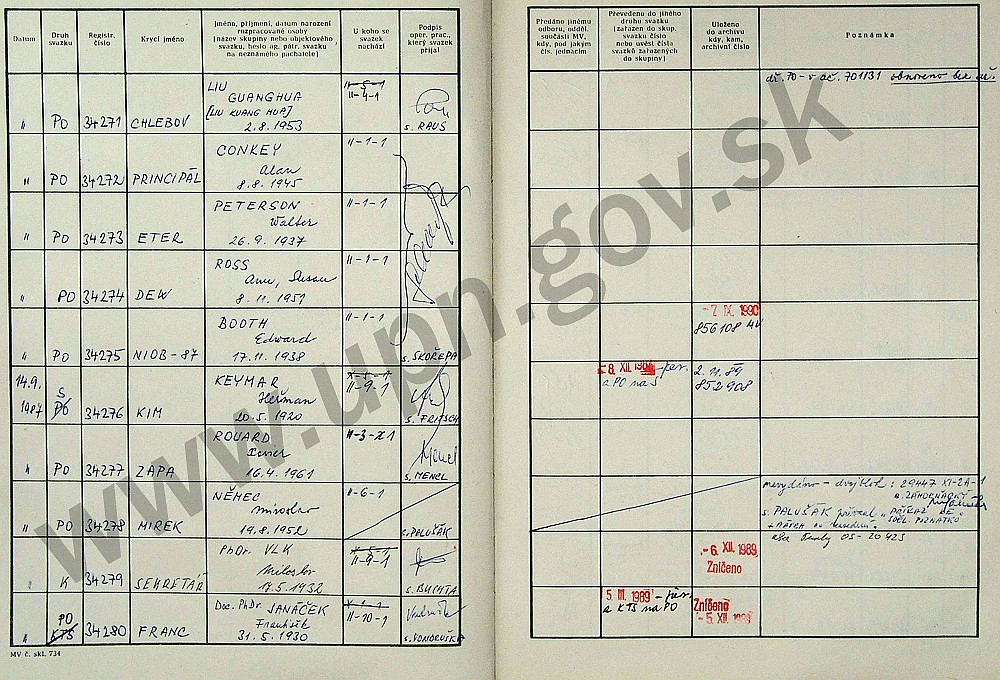 Datum
Druh svazku
Registr. číslo
Krycí jméno
Jméno, příjmení, datum narození
rozpracované osoby
(název skupiny nebo objektového
svazku, heslo ag. pátr. svazku
na neznámého pachatele)
U koho se svazek nachází
Podpis
oper. prac.,
který svazek
přijal
Předáno jinému
odboru, odděl.
součásti MV,
kdy, pod jakým
čís. jednacím
Převedeno do jiného
druhu svazku
(zařazen do skup.
svazku číslo
nebo uvést čísla
svazků zařazených
do skupiny)
Uloženo
do archivu
kdy, kam,
archivní číslo
Poznámka
" PO 34271 CHLEBOV
LIU
GUANGHUA
[LIU KUANG HUA]
2.8.1953
II-5-1
II-4-1
s. RAUS
obnoveno
" PO 34272 PRINCIPÁL
CONKEY
Alan
8.8.1945
II-1-1
" PO 34273 ETER
PETERSON
Walter
26.9.1937
II-1-1
" PO 34274 DEW
ROSS
Ann, Susan
8.11.1951
II-1-1
" PO 34275 NIOB-87
BOOTH
Edward
17.11.1938
II-1-1
s. SKOŘEPA
-7 IX. 1990
856108
14.9.
1987 S PO 34276 KIM
KEYMAR
Heřman
20.5.1920
X-5-1
II-9-1
s. FRITSCH
-8. XII. 198
a PO na S
2.11.89
852908
" PO 34277 ZAPA
ROUARD
Xavier
16.4.1961
II-3-X1
s. MENCL
" PO 34278 MIREK
NĚMEC
Miroslav
19.8.1952
II-6-1
s. PALUŠÁK
nevydáno - dvojblok: 29447 XI-2A-1
s. ZÁHORNACKÝ
s. PALUŠÁK
" K 34279 SEKRETÁŘ
PhDr. VLK
Miloslav
17.5.1932
II-9-1
s. BUCHTA
-6. XII. 1989
Zničeno
" PO KTS 34280 FRANC
Doc. PhDr. JANÁČEK
František
31.5.1930
X-1-1
II-10-1
s. VONDRUŠKA
5. III. 1989 - přev.
a KTS na PO
Zničeno
-5. XII. 1989
MV č. skl. 734
www.upn.gov.sk